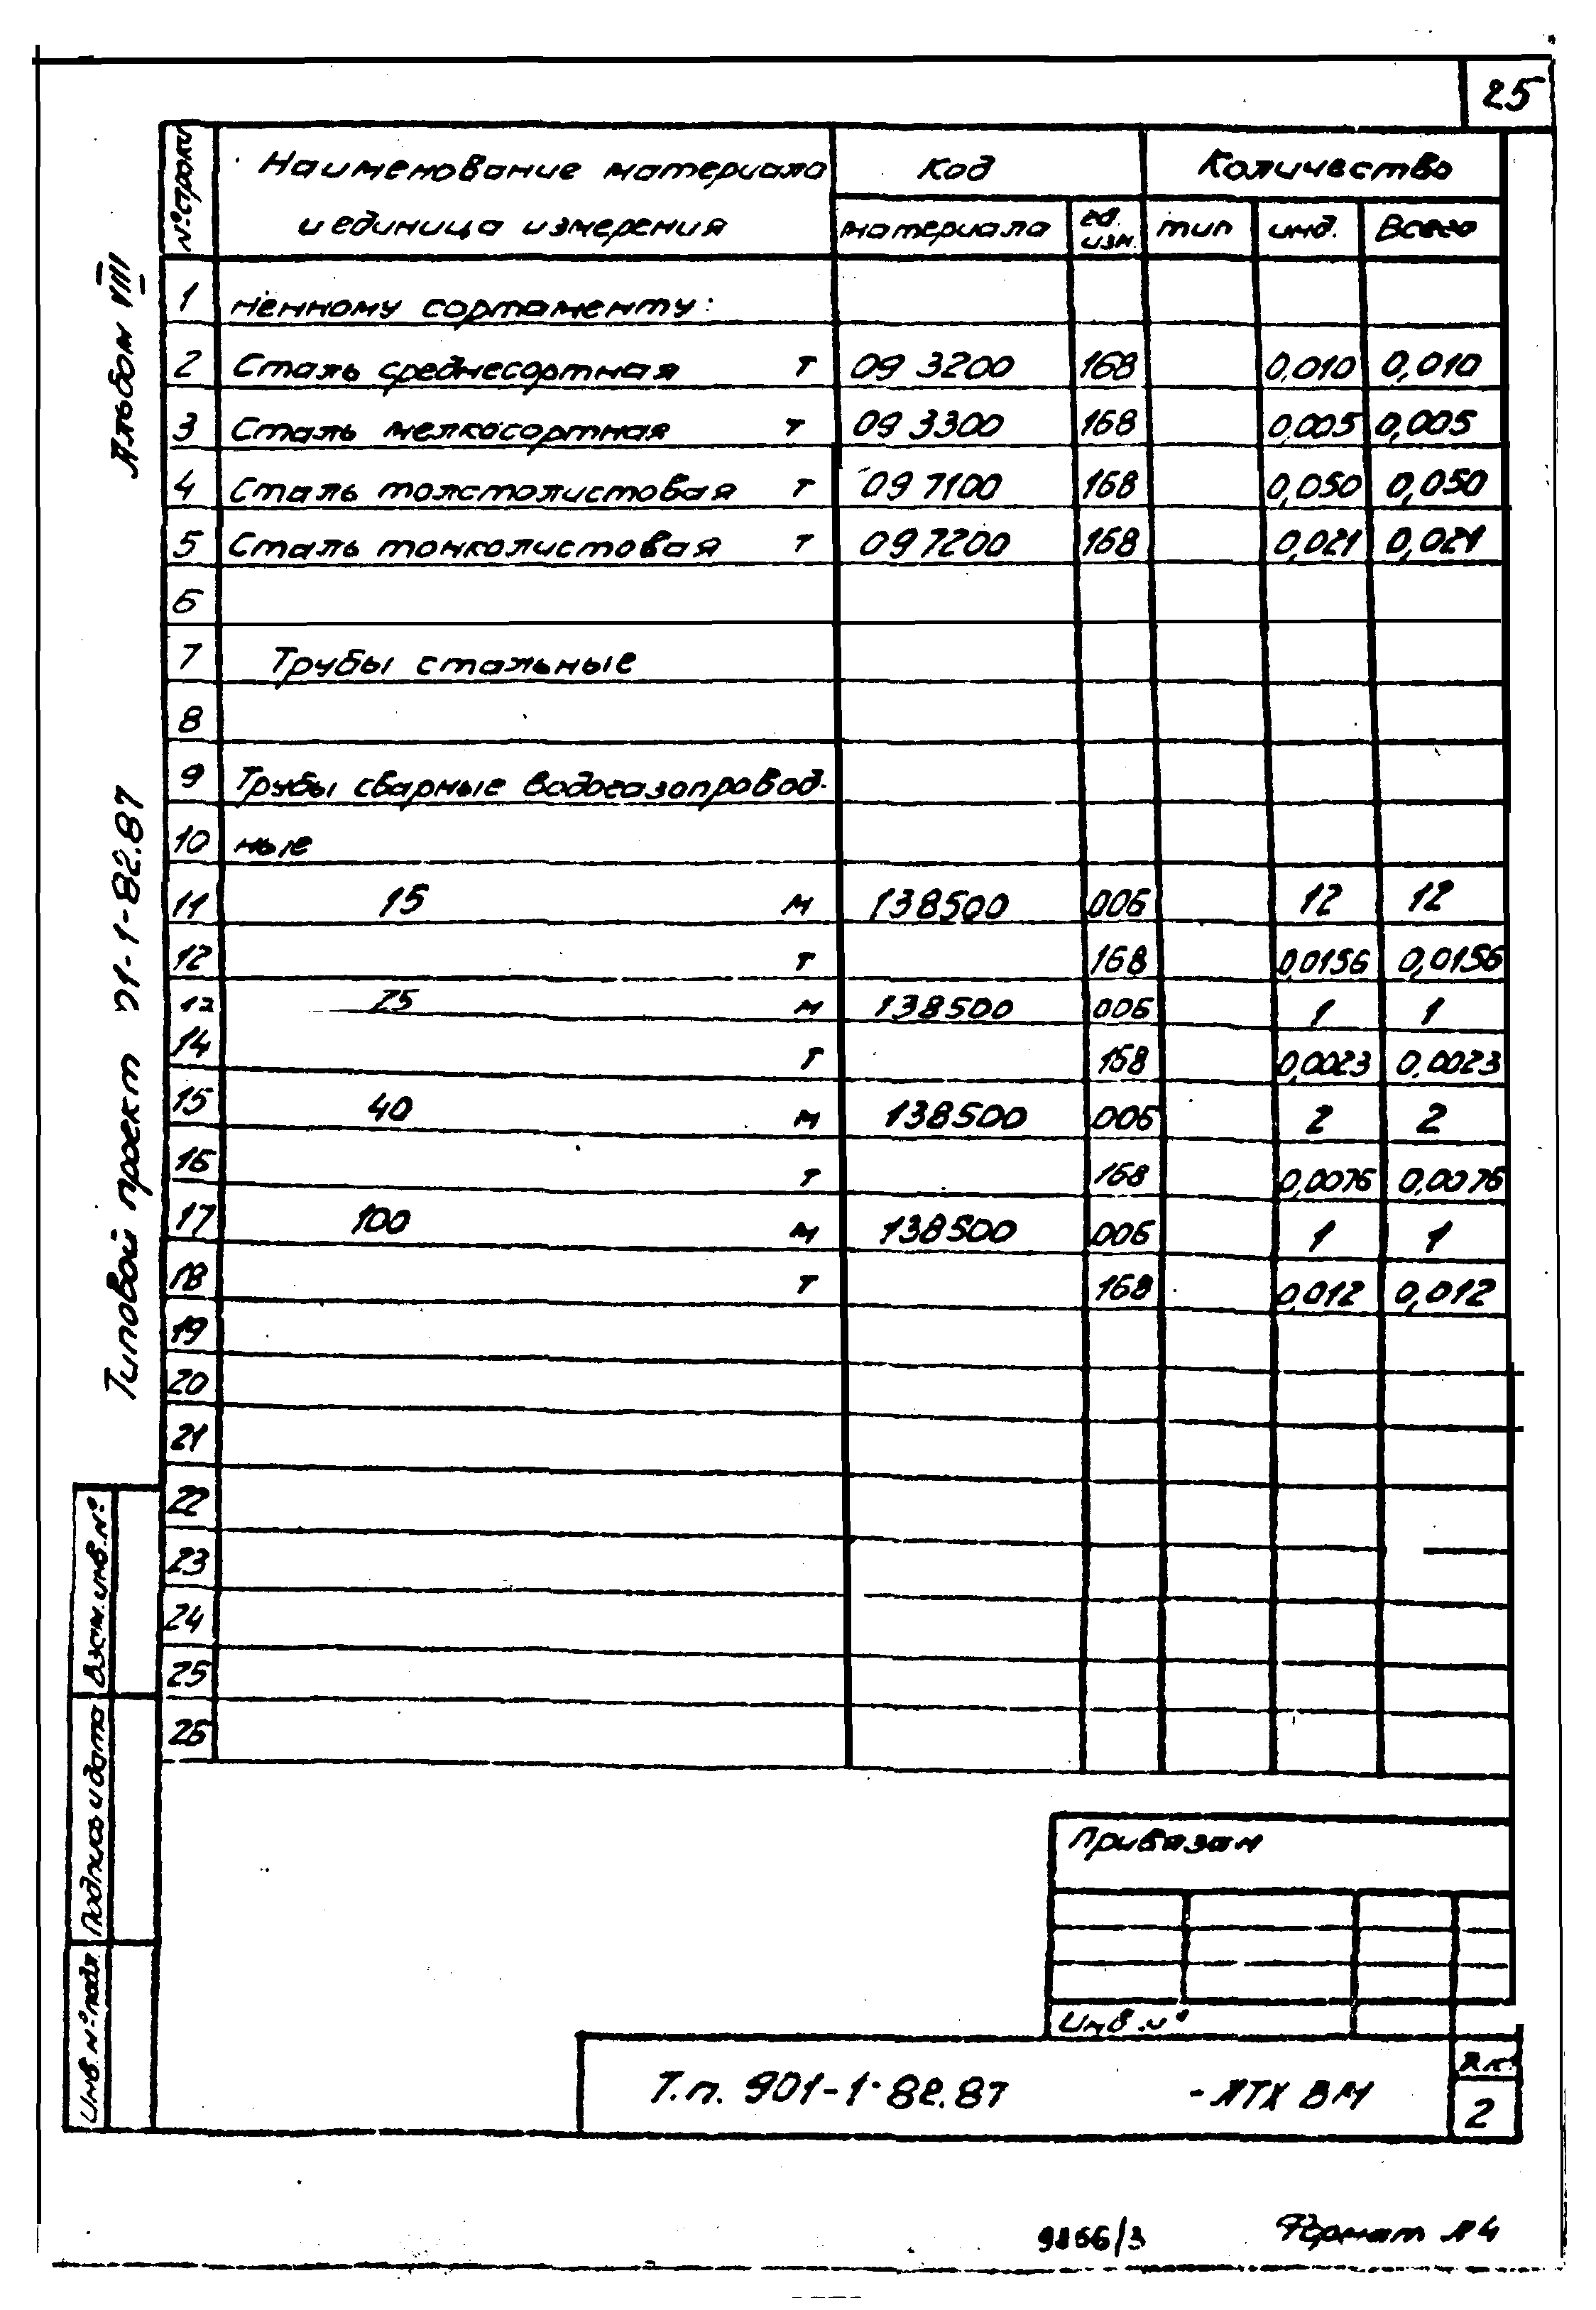 25
№ строки
Наименование материала
и единица измерения
Код
материала
ед. изм.
Количество
тип
инд.
Всего
1 ненному сортаменту:
2 Сталь среднесортная т 09 3200 168 0,010 0,010
3 Сталь мелкосортная т 09 3300 168 0,005 0,005
4 Сталь толстолистовая т 09 7100 168 0,050 0,050
5 Сталь тонколистовая т 09 7200 168 0,021 0,021
6
7 Трубы стальные
8
9 Трубы сварные водогазопровод-
10 ные
11 15 м 138500 006 12 12
12 т 168 0,0156 0,0156
13 25 м 138500 006 1 1
14 т 168 0,0023 0,0023
15 40 м 138500 006 2 2
16 т 168 0,0076 0,0076
17 100 м 138500 006 1 1
18 т 168 0,012 0,012
19
20
21
22
23
24
25
26
Альбом VIII
Типовой проект 01-1-82.87
Взам. инв. №
Подпись и дата
Инв. № подл.
Привязан
Инв. №
Т.п. 901-1-82.87 - АТХ ВМ
2
Формат А4